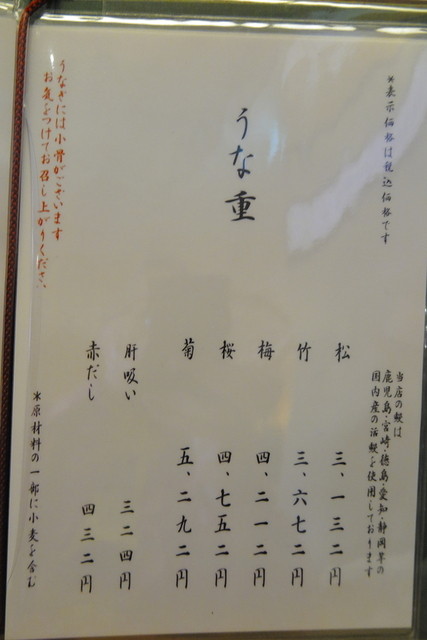 *表示価格は税込価格です
うな重
当店の鰻は
鹿児島・宮崎・徳島・愛知・静岡等の
国内産の活鰻を使用しております
松 三、一三二円
竹 三、六七二円
梅 四、二一二円
桜 四、七五二円
菊 五、二九二円
肝吸い 三二四円
赤だし 四三二円
うなぎには小骨がございます
お気をつけてお召し上がりください。
*原材料の一部に小麦を含む